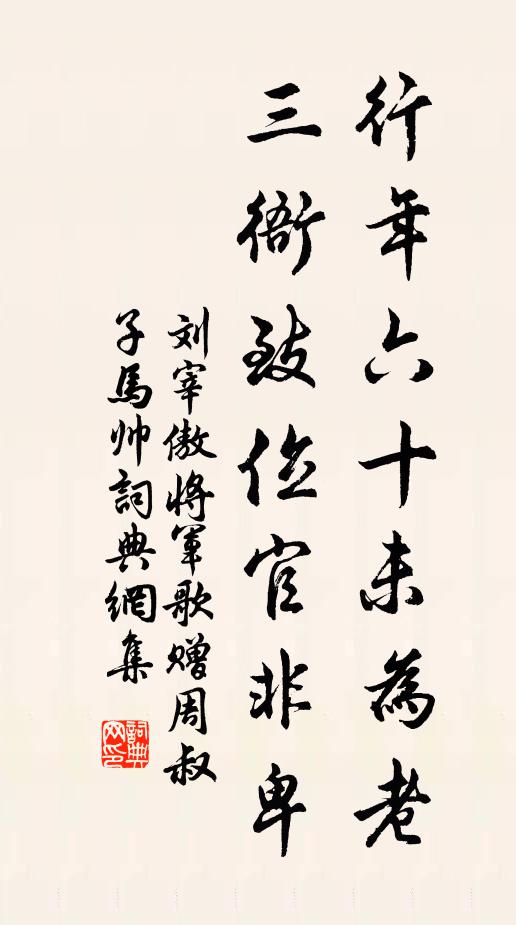 行年六十未為老
三衙致位官非卑
刘宰傲将軍歌赠周叔
子馬帅詞典網集
詞典